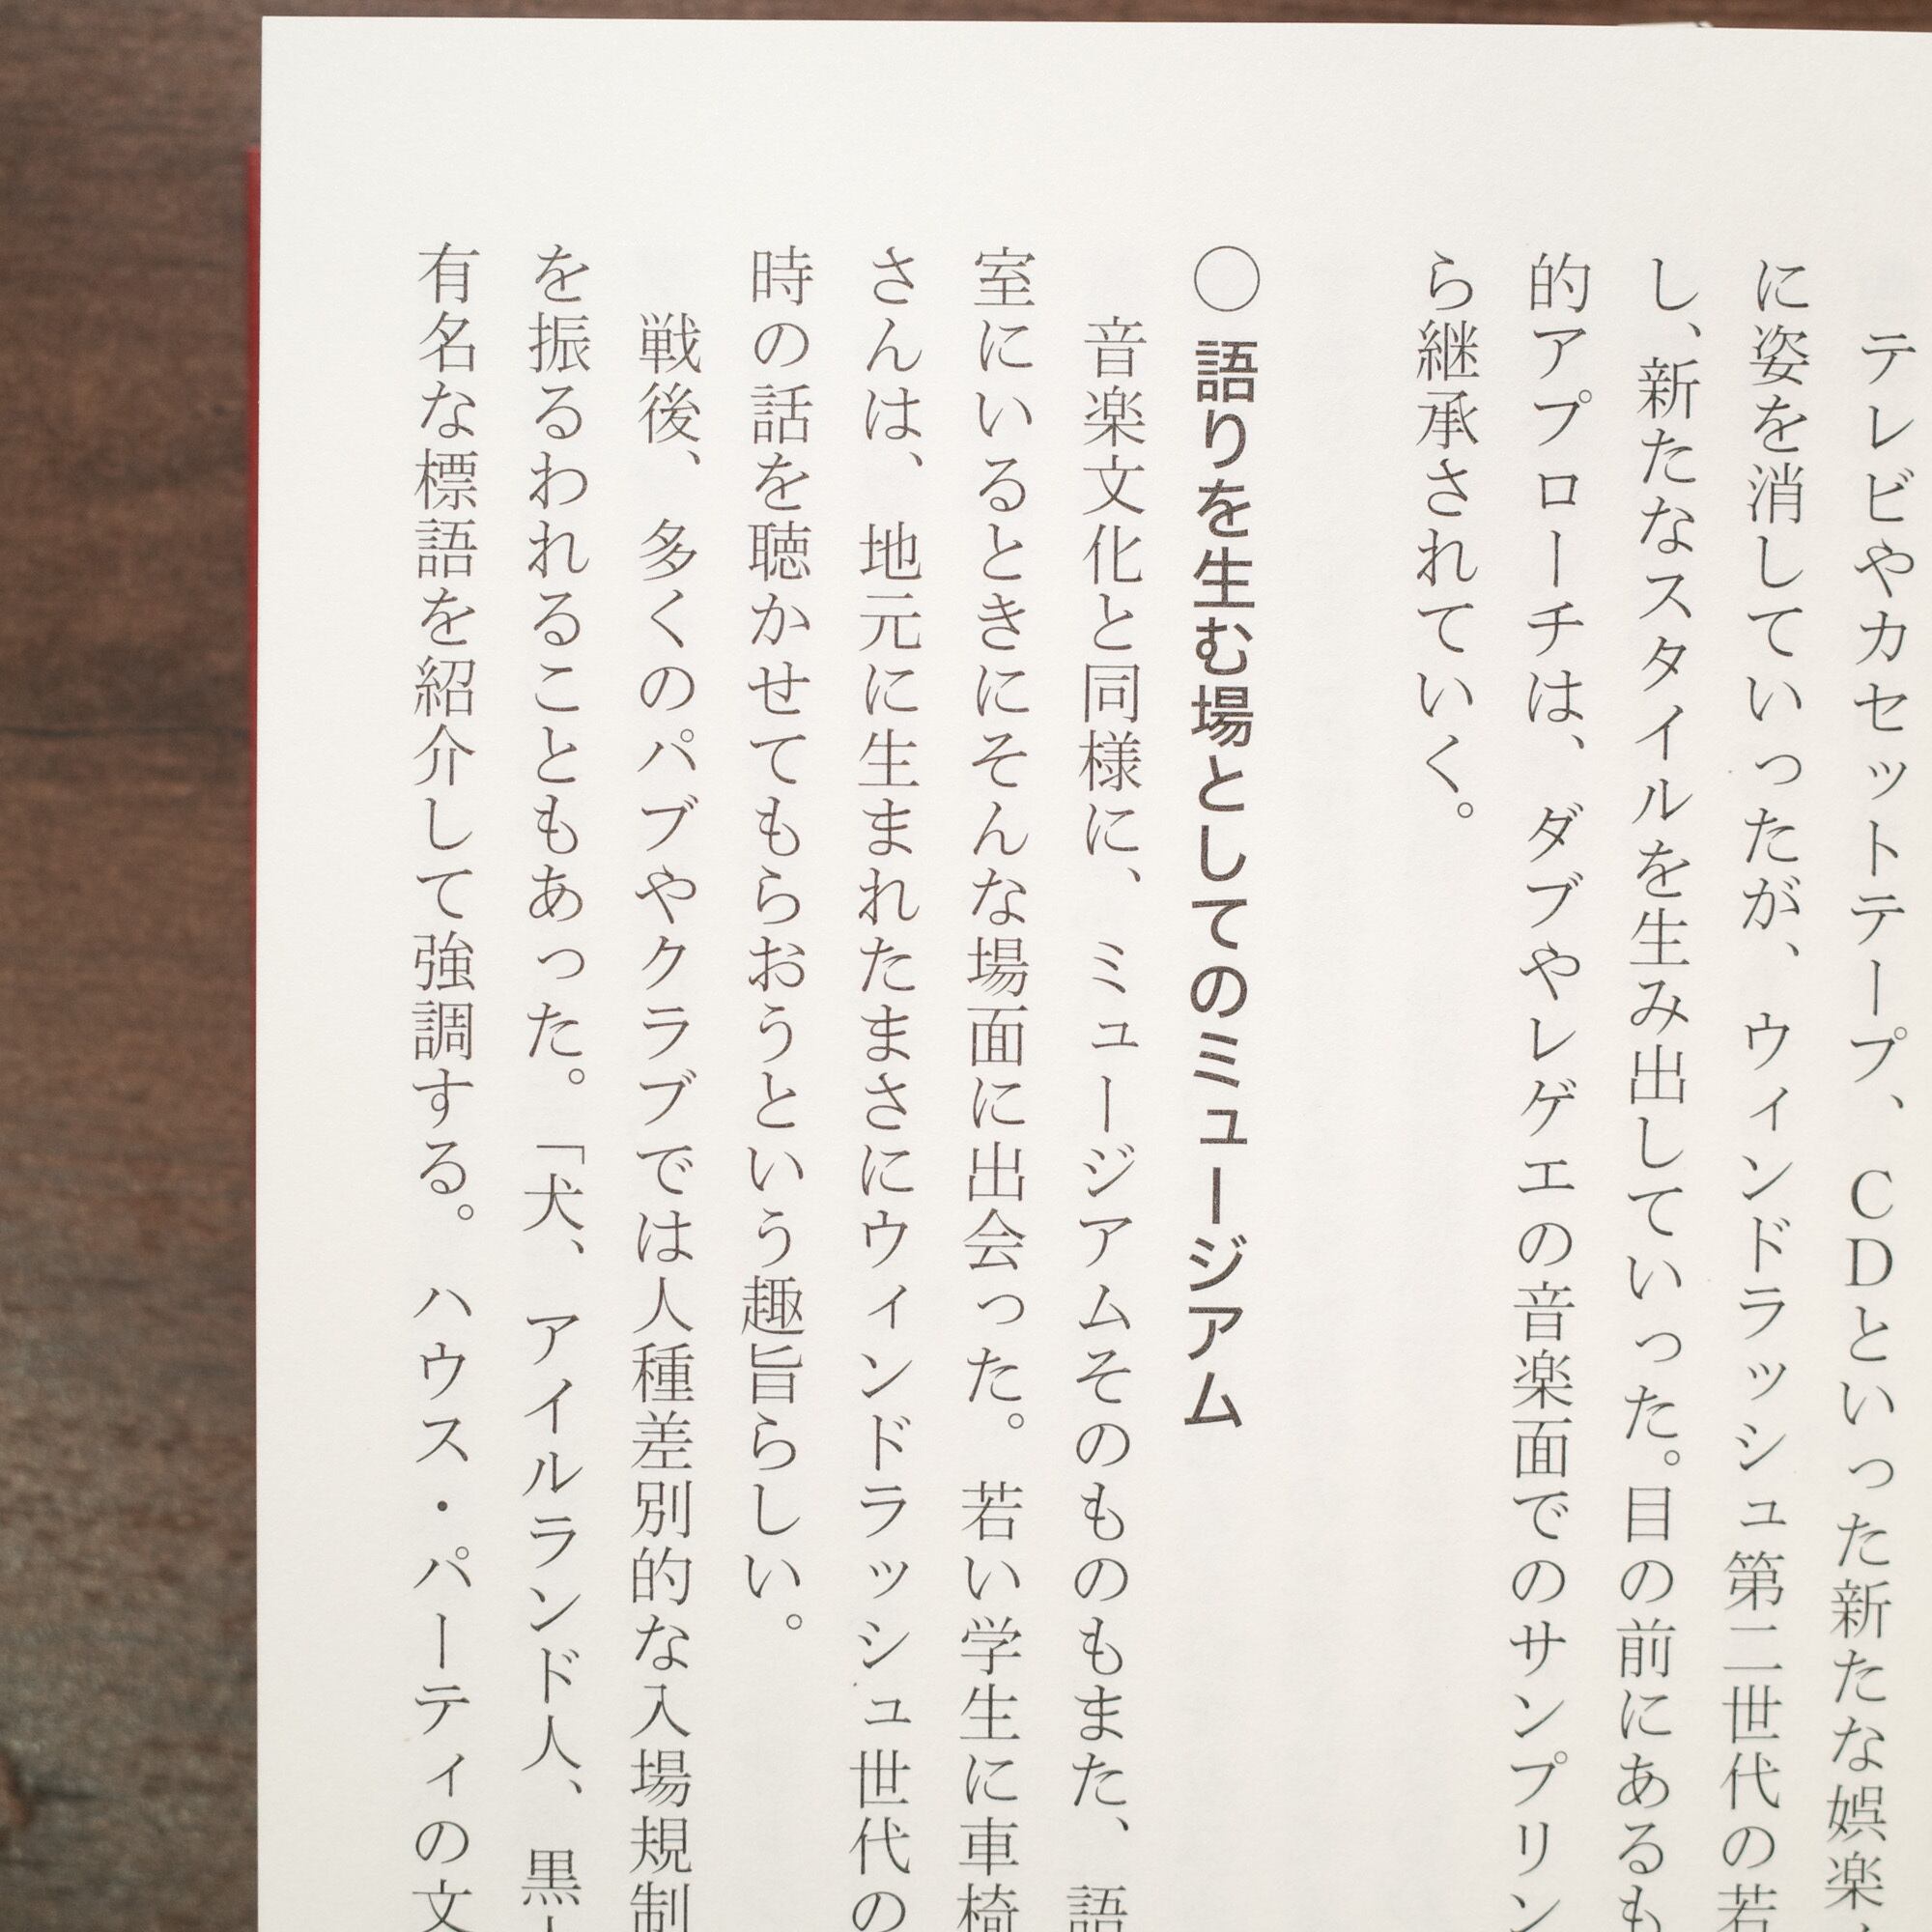 テレビやカセットテープ、CDといった新たな娯楽
に姿を消していったが、ウィンドラッシュ第二世代の若
し、新たなスタイルを生み出していった。目の前にあるも
的アプローチは、ダブやレゲエの音楽面でのサンプリン
ら継承されていく。
○ 語りを生む場としてのミュージアム
音楽文化と同様に、ミュージアムそのものもまた、語
室にいるときにそんな場面に出会った。若い学生に車椅
さんは、地元に生まれたまさにウィンドラッシュ世代の
時の話を聴かせてもらおうという趣旨らしい。
戦後、多くのパブやクラブでは人種差別的な入場規制
を振るわれることもあった。「犬、アイルランド人、黒
有名な標語を紹介して強調する。ハウス・パーティの文